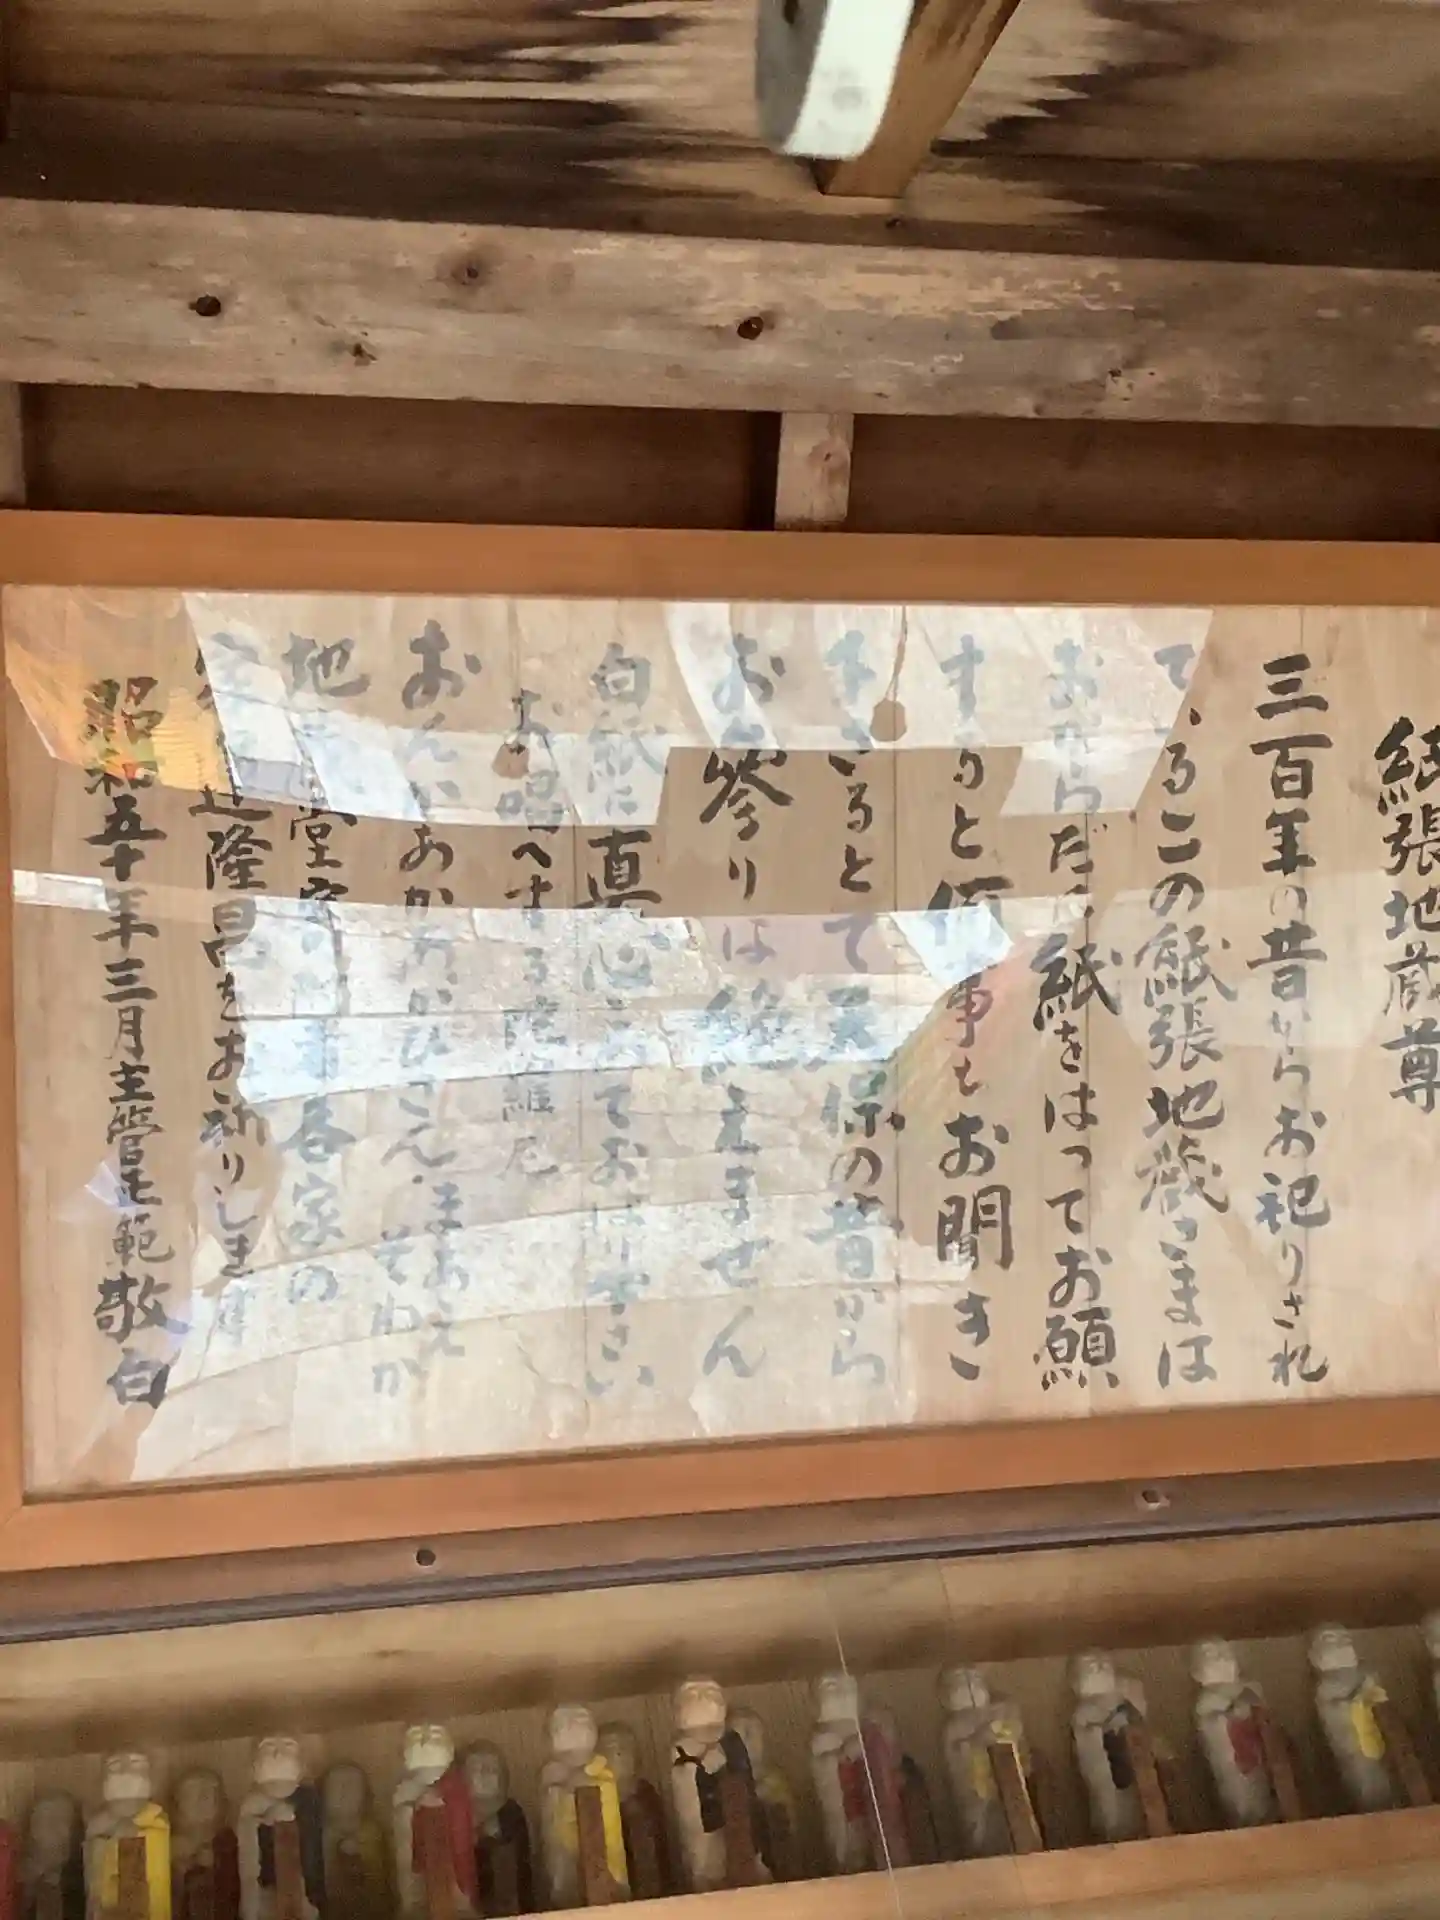 紙張地蔵尊
三百年の昔からお祀りされ
ているこの紙張地蔵さまは
おからだに紙をはってお願
すると何事もお聞き
下さるとて天保の昔から
お参りは絶えません
白紙に真心こめておはり下さい
お唱へする陀羅尼
おんかあかあかびさんまあえ
そわか
地蔵堂
各家の
隆昌をお祈りします
昭和五十年三月主管 範敬白